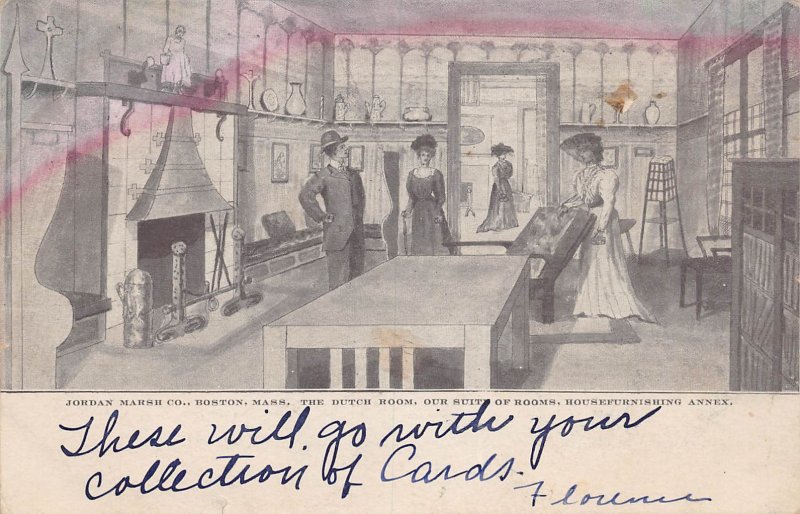 JORDAN MARSH CO., BOSTON, MASS. THE DUTCH ROOM, OUR SUITE OF ROOMS, HOUSEFURNISHING ANNEX.
These will go with your
collection of Cards.
Florence